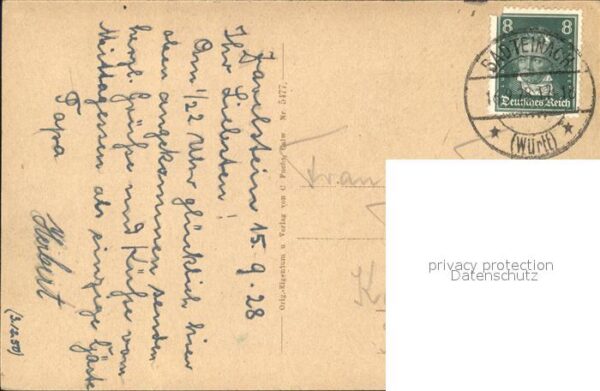 Zavelstein 15.9.28
Ihr Liebsten!
Um 1/22 Uhr glücklich hier
oben angekommen senden
herzl. Grüße und Küsse vom
Mittagessen als einzige Gäste
Papa
Herbert
(3.12.50)
Orig.-Eigentum u. Verlag von C. Fuchs, Calw Nr. 5477.
Frau
8 8
Deutsches Reich
BAD TEINACH
(Württ)
privacy protection
Datenschutz